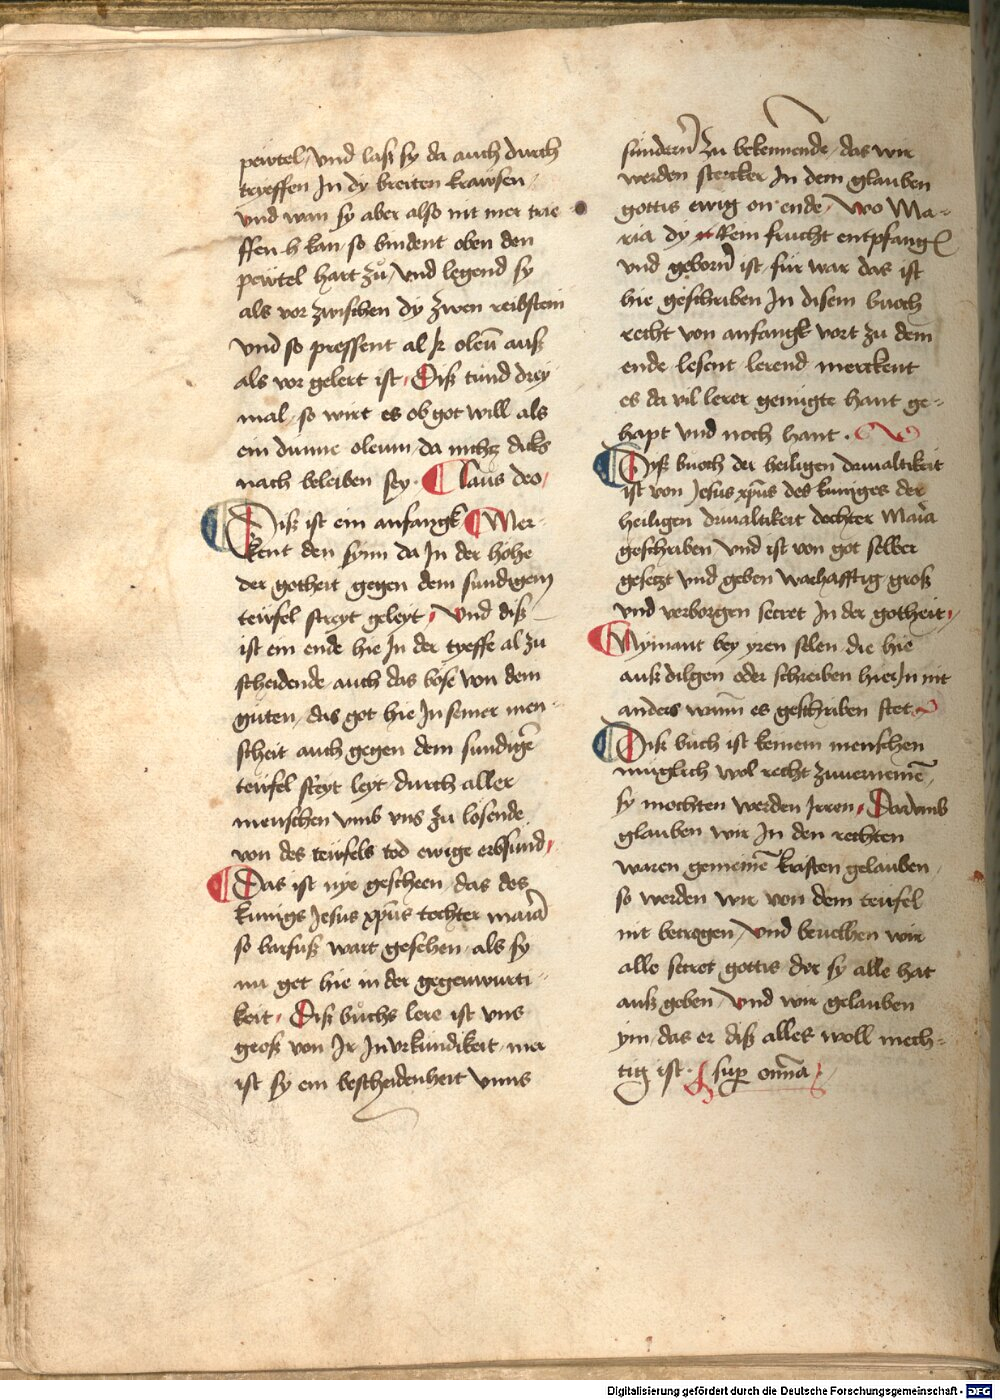 pewtel, vnd lass sy da auch durch
tryeffen In dy breiten krawsen,
vnd wan sy aber also nit mer trie
ffen kan so bindent oben den
pewtel hart zů, vnd legend sy
als vor zwischen dy zwen reibstein
vnd so pressent al ir oleū auß
als vor gelert ist, Diß tund drey
mal, so wirt es ob got will als
ein dunne oleum, da nichtz dicks
nach beleiben sey. ¶ Laus deo,
¶ Diß ist ein anfangk ¶ Mer-
kent den synn da In der höhe
der gotheit gegen dem sundigem
teufel streyt geleyt, Vnd diß
ist ein ende hie In der tyeffe al zu
scheidende auch das böse von dem
guten, das got hie In seiner men-
scheit auch gegen dem sundigē
teufel steyt leyt durch aller
menschen vmb vns zu losende
von des teufels tod ewige erbsund,
¶ Das ist nye gescheen das des
kunigs Jesus xp̄us tochter maria
so barfuß wart gesehen als sy
nu get hie in der gegenwurti-
keit, Diß buchs lere ist vns
groß von Ir In vrkundikeit, mer
ist sy ein bescheidenheit vnns
sündern zu bekennende, das wir
werden stercker In dem glauben
gottis ewig on ende, Wo Ma-
ria dy rein frucht entpfang
vnd geborn ist, für war das ist
hie geschriben In disem buoch
recht von anfangk vort zu dem
ende lesent lerend merckent
es da vil lerer genugte hant ge-
hapt vnd noch hant.
¶ Dyß buoch der heiligen driualtikeit
ist von Jesus xp̄us des kuniges der
heiligen driualtikeit dochter Maria
geschriben vnd ist von got selber
gesetzt vnd geben warhafftig groß
vnd verborgen secret In der gotheit,
¶ Nymant bey yren selen die hie
auß dilgen oder schreiben hier In nit
anders wann es geschriben stet
¶ Diß buch ist keinem menschen
muglich wol recht zuuernemē,
sy mochten werden Irren, Darumb
glauben wir In den rechten
waren gemeinē kraften gelauben,
so werden wir von dem teufel
nit betrogen, vnd beuelhen wir
alle secret gottis der sy alle hat
auß geben, Vnd wir gelauben
ym, das er diß alles woll mech-
tig ist. sup om̄ia
Digitalisierung gefördert durch die Deutsche Forschungsgemeinschaft - DFG